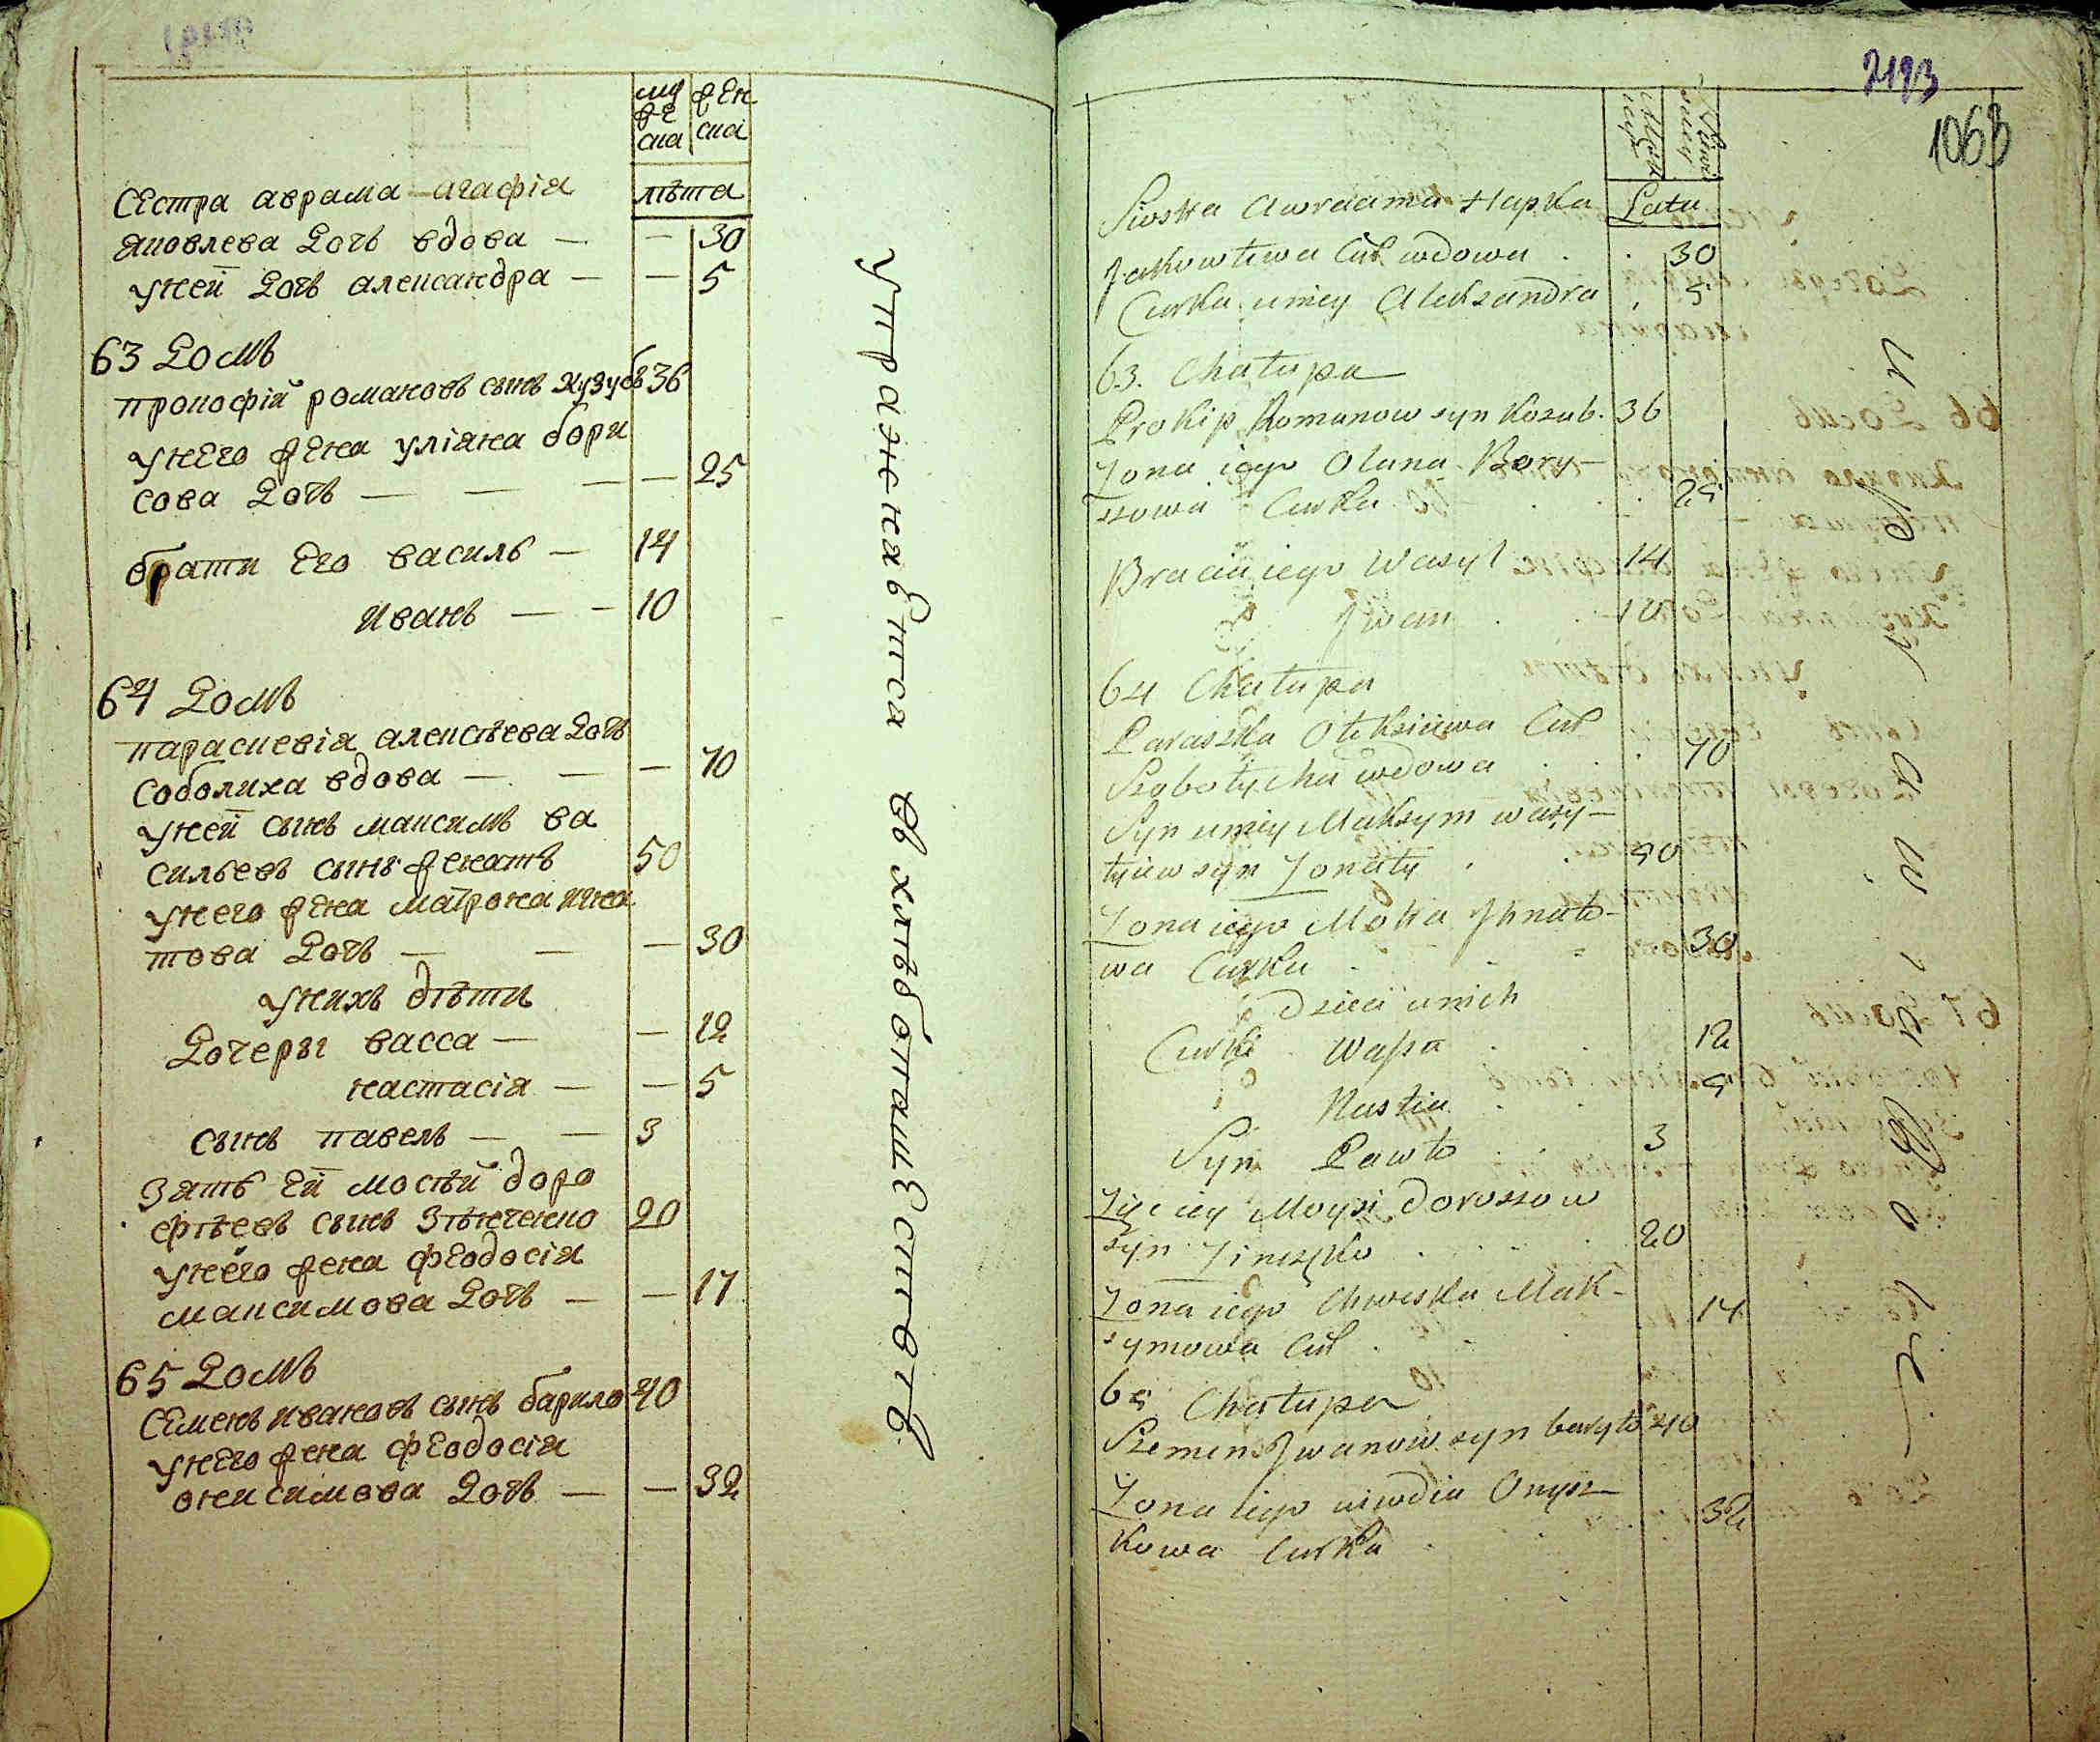 муж
ес
ска
жен
ска
лѣта
Сестра аврама агафія
яковлева Дочь вдова — — 30
унеи Дочь александра — — 5
63 Домъ
прокофій романовъ сынъ Кузубъ 36
унего жена уліяна бори
сова Дочь — — — — 25
брати Его василь — 14
иванъ — — 10
64 Домъ
параскевія алексѣева Дочь
соболиха вдова — — — 70
унеи сынъ максимъ ва
сильевъ сынъ женатъ 50
унего жена матрона игна
това Дочь — — — 30
унихъ дѣти
Дочеры васса — — 12
настасія — — 5
сынъ павелъ — — 3
Зять Еи мосѣй доро
ефѣевъ сынъ Зѣнченко 20
унего жена феодосія
максимова Дочь — — 17
65 Домъ
Семенъ ивановъ сынъ барило 40
унего жена феодосія
онисимова Дочь — — 32
упражняется въ хлѣбопашествѣ
2193
1063
Latu
Siostra Awraama Hapka
Jakowliwa Curk wdowa . . 30
Curka uniey Aleksandra . 5
63. Chatupa
Prokip Romanow syn Kozub. 36
Zona iego Olana Bory-
ssowa Curka . . . 25
Braciia iego Wasyl 14
Iwan . . 10
64 Chatupa
Paraszka Oleksiiwa Curk
Szobolycha wdowa . . . 70
Syn uniey Maksym wasy-
lyiuw syn Zonaty . . 50
Zona iego Motra Ihnato-
wa Curka . . . 30
Dzieci unich
Curki Waska . . 12
Nastia . . 5
Syn Pawlo . 3
Zięc iey Moysi Doroszow
syn Zinczko . . . 20
Zona iego Chweska Mak-
symowa Curk . . 17
65 Chatupa
Szemen Iwanow syn barylo 40
Zona iego wiwdia Onysz-
kowa Curka . 32